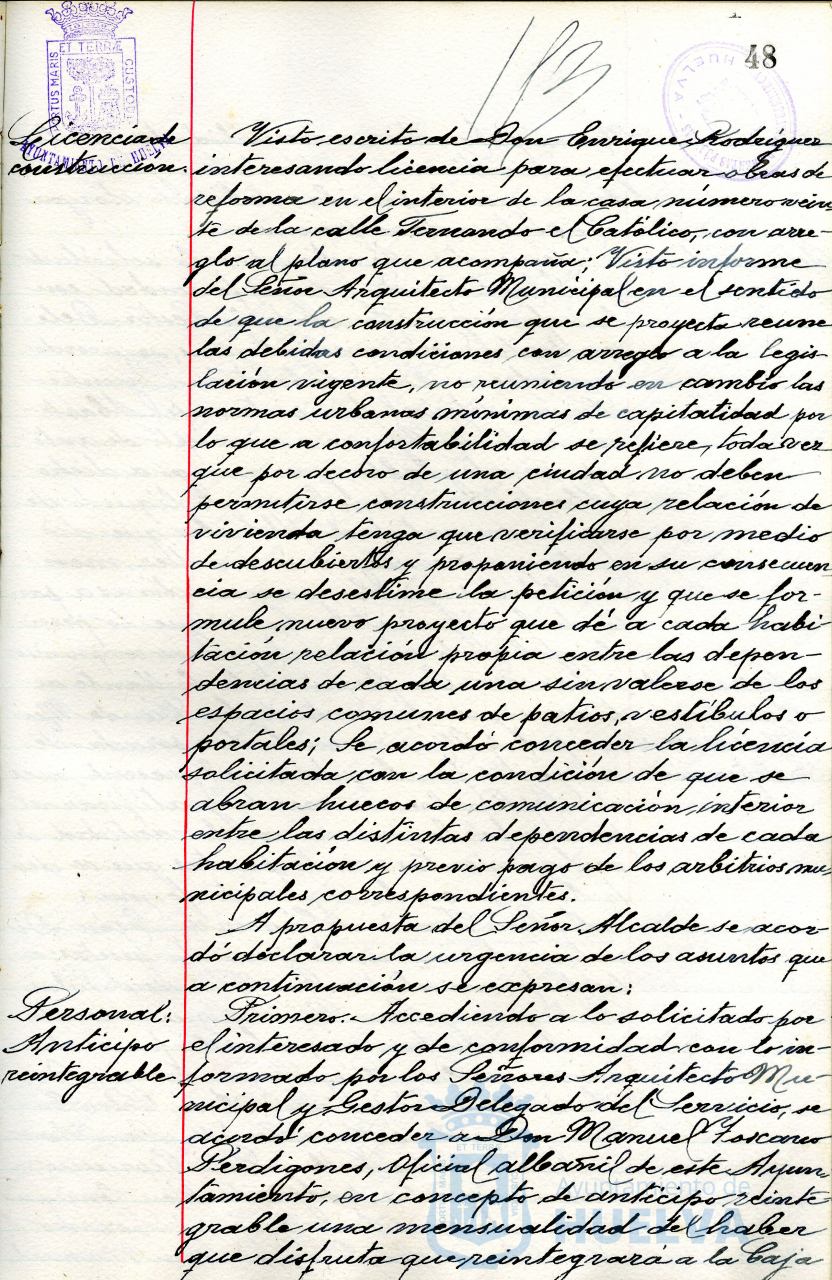 48
183
PORTUS MARIS ET TERRÆ CUSTODIA
AYUNTAMIENTO DE HUELVA
Licencia de
construccion.
Visto escrito de Don Enrique Rodriguez
interesando licencia para efectuar obras de
reforma en el interior de la casa número vein
te de la calle Fernando el Católico, con arre-
glo al plano que acompaña; Visto informe
del Señor Arquitecto Municipal en el sentido
de que la construcción que se proyecta reune
las debidas condiciones con arreglo a la legis-
lación vigente, no reuniendo en cambio las
normas urbanas mínimas de capitalidad por
lo que a confortabilidad se refiere, toda vez
que por decoro de una ciudad no deben
permitirse construcciones cuya relación de
vivienda tenga que verificarse por medio
de descubiertos y proponiendo en su consecuen
cia se desestime la petición y que se for-
mule nuevo proyecto que dé a cada habi-
tación relación propia entre las depen-
dencias de cada una sin valerse de los
espacios comunes de patios, vestíbulos o
portales; Se acordó conceder la licencia
solicitada con la condición de que se
abran huecos de comunicación interior
entre las distintas dependencias de cada
habitación y previo pago de los arbitrios mu-
nicipales correspondientes.
A propuesta del Señor Alcalde se acor-
dó declarar la urgencia de los asuntos que
a continuación se expresan:
Personal:
Anticipo
reintegrable
Primero. Accediendo a lo solicitado por
el interesado y de conformidad con lo in-
formado por los Señores Arquitecto Mu-
nicipal y Gestor Delegado del Servicio, se
acordó conceder a Don Manuel Toscano
Perdigones, Oficial albañil de este Ayun-
tamiento, en concepto de anticipo reinte-
grable una mensualidad del haber
que disfruta que reintegrará a la Caja
Ayuntamiento de
HUELVA